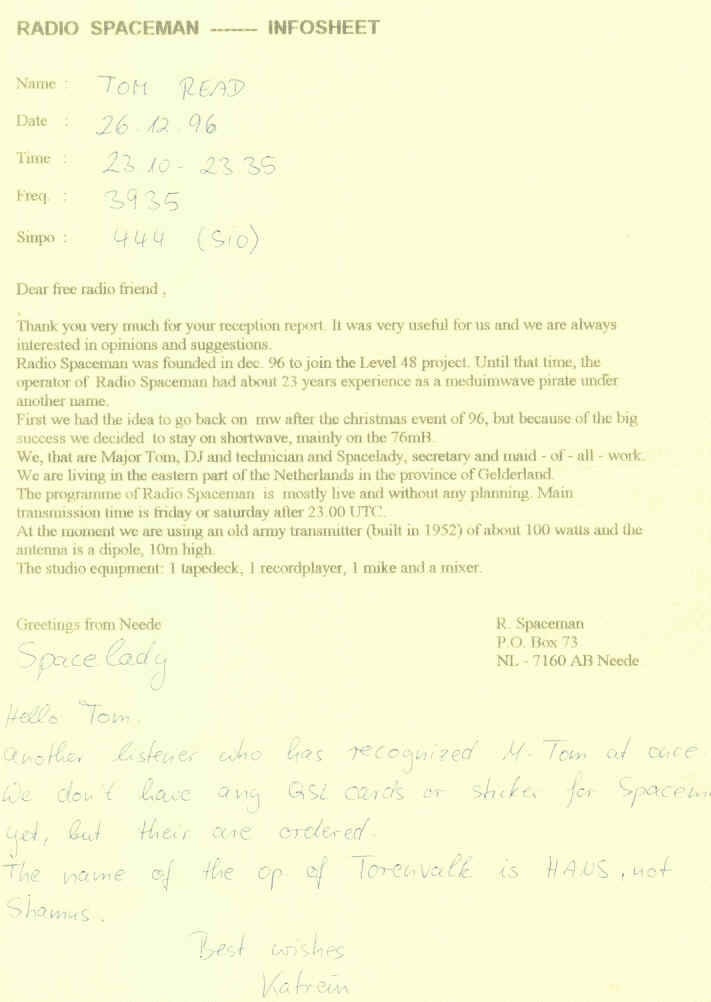 RADIO SPACEMAN ------- INFOSHEET
Name : TOM READ
Date : 26.12.96
Time : 23.10 - 23.35
Freq. : 3935
Sinpo : 444 (SIO)
Dear free radio friend ,
Thank you very much for your reception report. It was very useful for us and we are always
interested in opinions and suggestions.
Radio Spaceman was founded in dec. 96 to join the Level 48 project. Until that time, the
operator of Radio Spaceman had about 23 years experience as a meduimwave pirate under
another name.
First we had the idea to go back on mw after the christmas event of 96, but because of the big
success we decided to stay on shortwave, mainly on the 76mB.
We, that are Major Tom, DJ and technician and Spacelady, secretary and maid - of - all - work.
We are living in the eastern part of the Netherlands in the province of Gelderland.
The programme of Radio Spaceman is mostly live and without any planning. Main
transmission time is friday or saturday after 23.00 UTC.
At the moment we are using an old army transmitter (built in 1952) of about 100 watts and the
antenna is a dipole, 10m high.
The studio equipment: 1 tapedeck, 1 recordplayer, 1 mike and a mixer.
Greetings from Neede
Spacelady
R. Spaceman
P.O. Box 73
NL - 7160 AB Neede
Hello Tom.
another listener who has recognized M. Tom at once.
We don't have any QSL cards or sticker for Spacem
yet, but their are ordered.
The name of the op of Torenvalk is HANS, not
Shamus.
Best wishes
Katrein